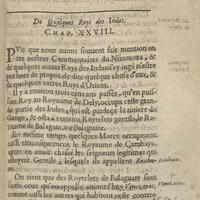 De quelques Roys des Indes.
CHAP. XXVIII.
PVis que nous auons souuent fait mention en
ces nostres Commentaires du Nizamoxa, & de
quelques autres Roys des Indes, i'ay iugé n'estre
pas hors de propos, de dire quelque chose d'eux, &
de quelques autres Roys d'Orient.
Il y a enuiron trois cens ans passé, qu'vn puis-
sant Roy au Royaume de Dely, occupa ceste gran-
de partie des Indes, qui est par delà la riuiere de
Gange, & osta à certains Roytelets gentils, le Ro-
yaume de Balagate, ou Balaguate.
En mesme temps, quelques Mores occuperent
tyranniquement le Royaume de Cambaya,
apres en auoir chassé les seigneurs legitimes qui
estoyent Gentils, lesquels ils appellent
On tient que des Roytelets de Balaguate sont
sortis ceux qu'on appelle auiourd'huy Venezaras,
comme aussi les autres qui habitent ceste contree